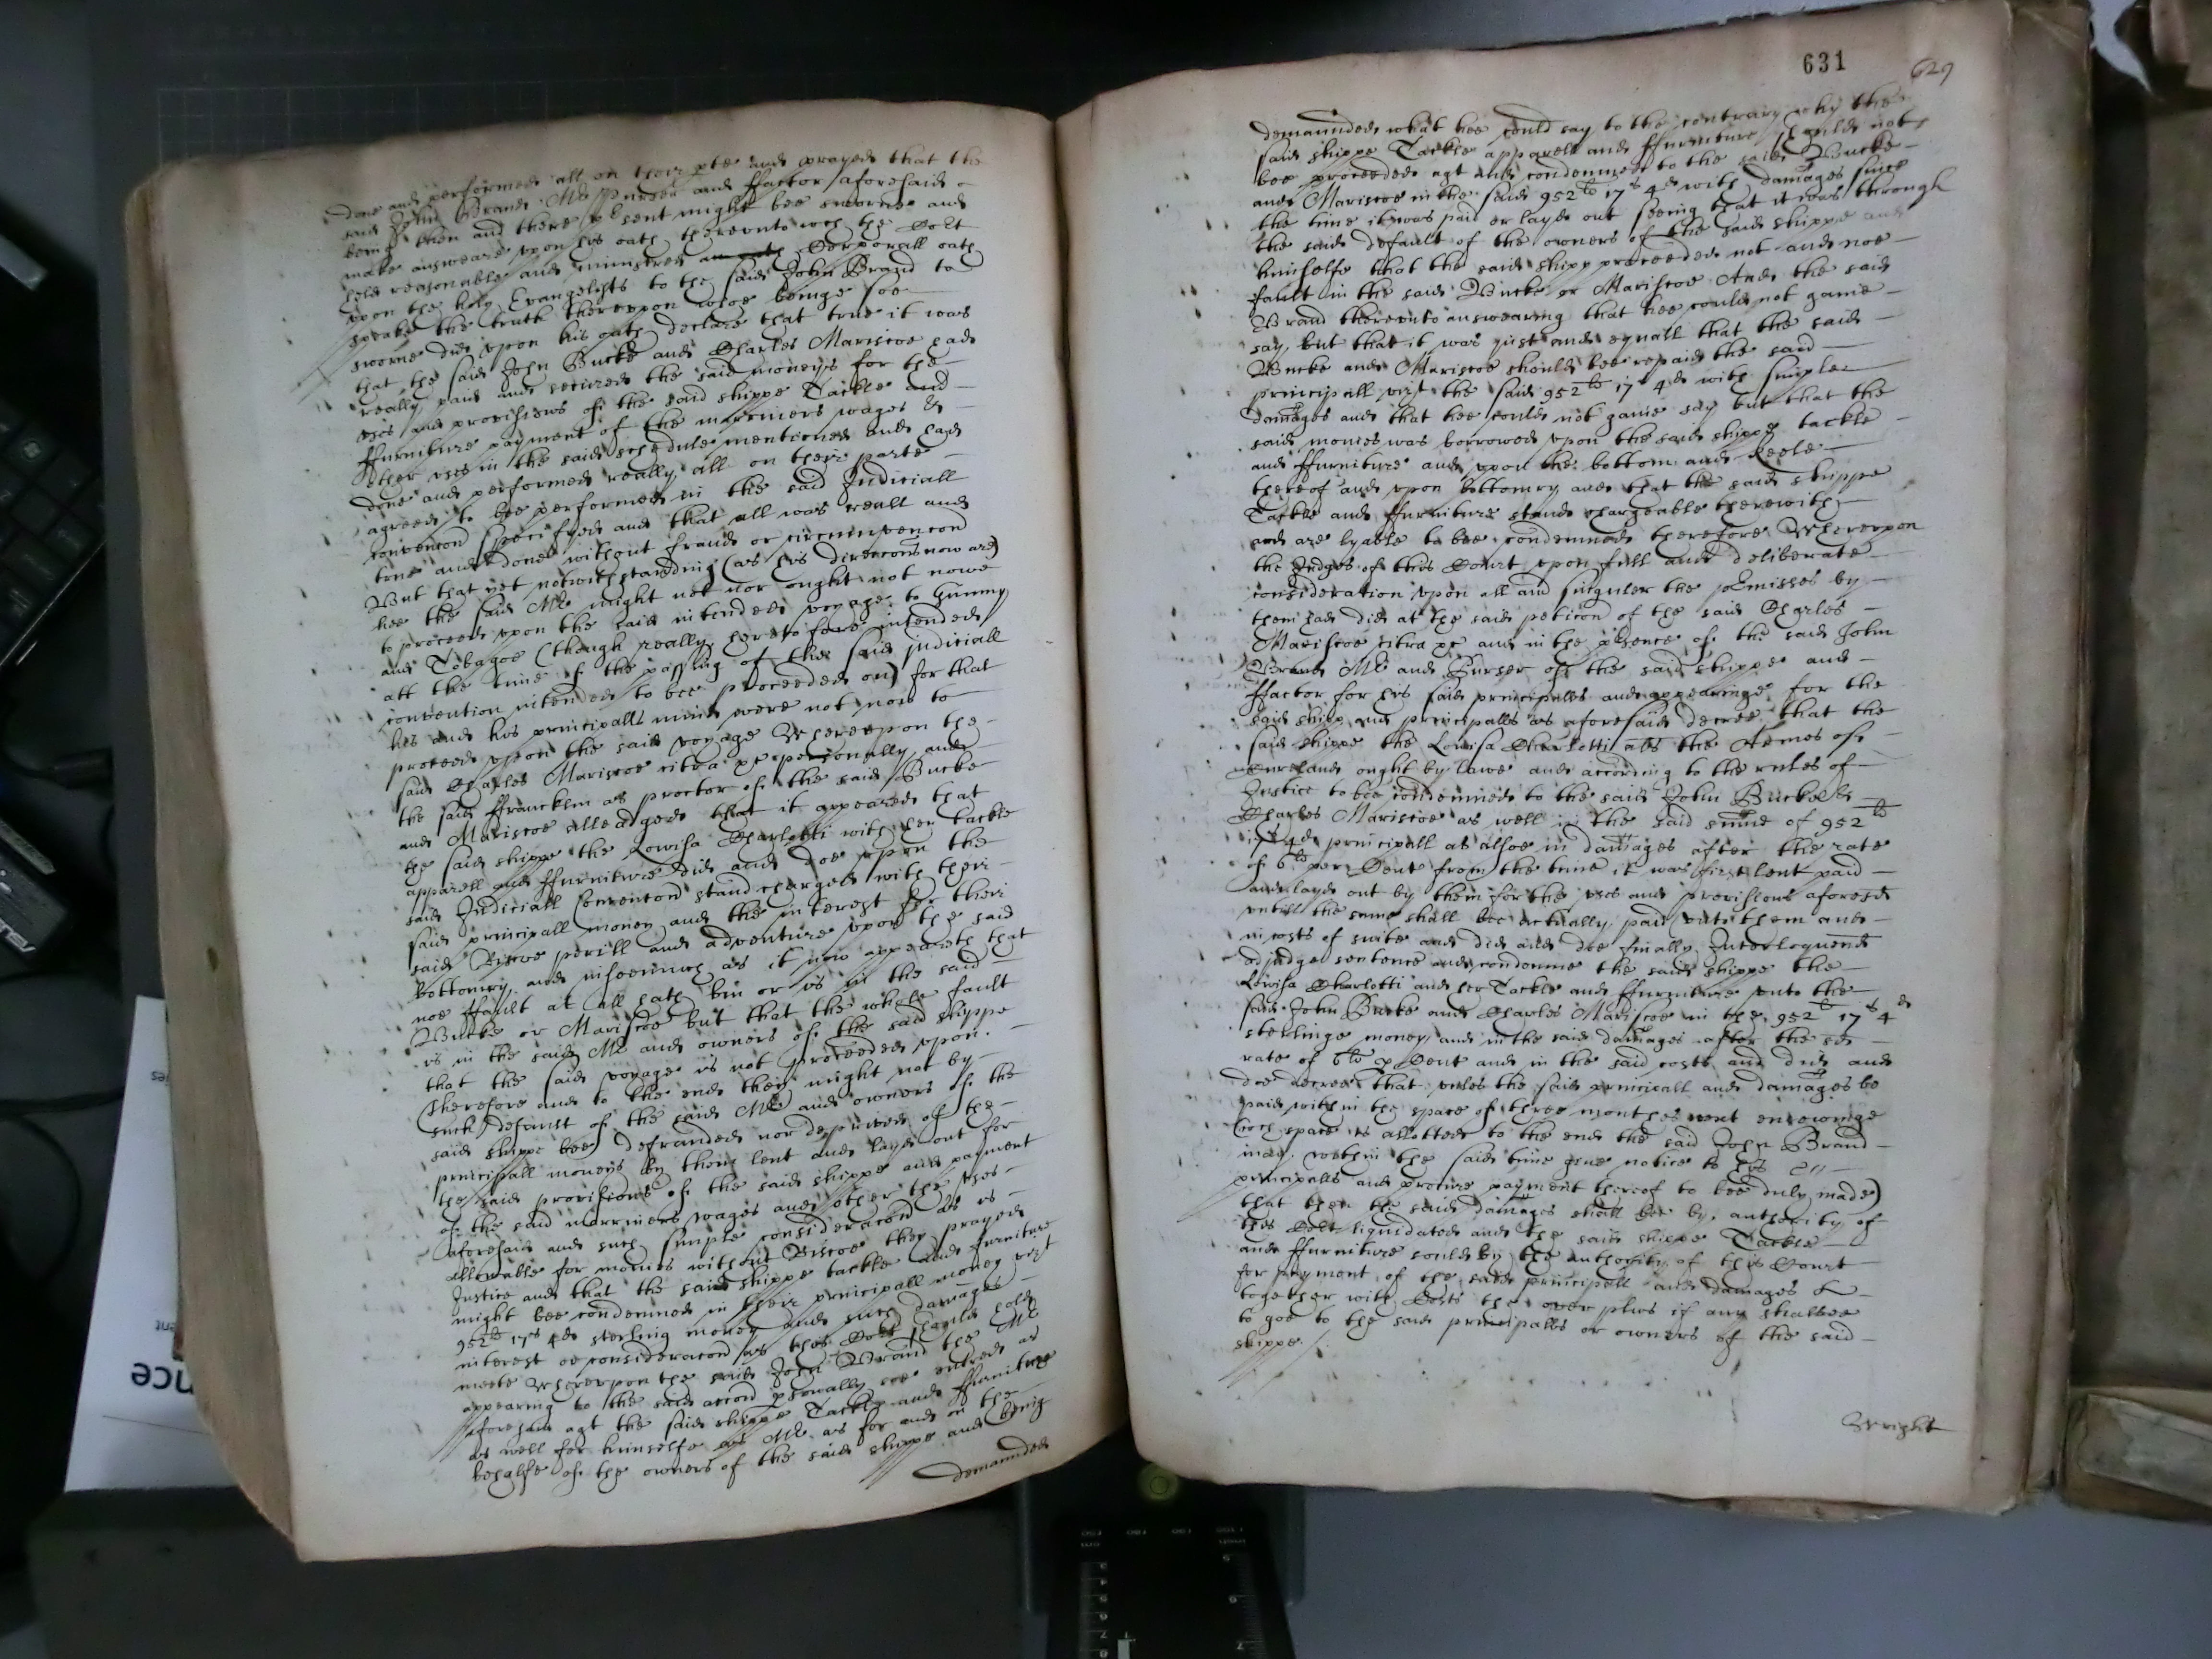 done and performed all on their pte and prayed that the
said John Brand Mr purser and ffactor aforesaid
being then and there psent might bee sworne and
make answeare upon his oath thereunto wch the Cort
held reasonable and ministred an oath Corporall oath
upon the holy Evangelists to the said John Brand to
speake the truth thereupon whoe beinge soe
sworne did upon his oath declare that true it was
that the said John Bucke and Charles Mariscoe had
really paid and secured the said moneys for the
uses and provisions of the said shippe Tackle and
ffurniture payment of the marriners wages &
other uses in the said schedule mentioned and had
done and performed really all on their parte
agreed to bee performed in the said Judiciall
convencon specifyed and that all was reall and
true and done without fraude or circumvencon
But that yet notwithstanding (as his direccons now are)
hee the said Mr might not nor ought not nowe
to proceed upon the said intended voyage to Guinny
and Tobagoe (though really heretofore intended
att the time of the passing of the said judiciall
convention intended to bee proceeded on) for that
his and his principalls minds were not now to
proceed upon the said voyage Whereupon the
said Charles Mariscoe citra &c personally and
the said ffrancklin as proctor of the said Bucke
and Mariscoe alleadged that it appeared that
the said shippe the Lowisa Charlotti with her tackle
apparell and ffurniture did and doe upon the
said Judiciall Convencon stand charged with their
said principall money and the interest for their
said Riscoe perill and adventure upon the said
Bottomry and insoemuch as it now appeareth that
noe ffault at all hath bin or is in the said
Bucke or Mariscoe but that the whole fault
is in the said Mr and owners of the said shippe
that the said voyage is not proceeded upon
(therefore and to the end they might not by
such) default of the said Mr and owners of the
said shippe bee) defrauded nor deprived of the
principall moneys by them lent and layd out for
the said provisions of the said shippe and payment
of the said marriners wages and other the uses
aforesaid and such simple consideracon as is
allowable for monies without Riscoe they prayed
Justice and that the said shippe tackle and furniture
might bee condemned in their principall money vizt
952li 17s 4d sterling money and such damages
interest or consideracon as this Cort should hold
meete Whereupon the said John Brand the Mr
appearing to the said accon psonally soe entred as
aforesaid agt the said shippe Tackle and ffurniture
as well for himselfe as Mr as for and on the
behalfe of the owners of the said shippe and being
demaunded
631
629
demaunded what hee could say to the contrary why the
said shippe Tackle apparell and ffurniture should not
bee proceeded agt and condemned to the said Bucke
and Mariscoe in the said 952li 17s 4d with damages since
the time it was paid or layd out seeing that it was through
the said default of the owners of the said shippe and
himselfe that the said shipp proceeded not and noe
fault in the said Bucke or Mariscoe And the said
Brand thereunto answearing that hee could not gaine
say but that it was just and equall that the said
Bucke and Mariscoe should bee repaid the said
principall vizt the said 952li 17s 4d with simple
damages and that hee could not gaine say but that the
said monies was borrowed upon the said shippe tackle
and ffurniture and upon the bottom and Keele
thereof and upon bottomry and that the said shippe
Tackle and ffurniture stands chargeable therewith
and are lyable to bee condemned therefore Whereupon
the Judges of this Court upon full and deliberate
consideration upon all and singuler the pmisses by
them had did at the said peticon of the said Charles
Mariscoe citra &c and in the psence of the said John
Brand Mr and Purser of the said shippe and
ffactor for his said principalls and appearinge for the
said shipp and principalls as aforesaid decree that the
said shippe the Lowisa Charlotti als the Armes of
Cureland ought by lawe and according to the rules of
Justice to bee condemned to the said John Bucke &
Charles Mariscoe as well in the said summe of 952li
17s 4d principall as alsoe in damages after the rate
of 6li per Cent from the time it was first lent paid
and layd out by them for the uses and provisions aforesd
untill the same shall bee actually paid unto them and
in costs of suite and did and doe finally Interloquend
adjudge sentence and condemne the said shippe the
Lowisa Charlotti and her Tackle and ffurniture unto the
said John Bucke and Charles Mariscoe in the 952li 17s 4d
sterlinge money and in the said damages after the sd
rate of 6li p Cent and in the said costs and did and
doe decree that unles the said principall and damages be
paid within the space of three monthes next ensewinge
(wch space is allotted to the end the said John Brand
may within the said time give notice to his
principalls and procure payment thereof to bee duly made)
that then the said damages shall bee by authority of
this Cort liquidated and the said shippe Tackle
and ffurniture sould by the authority of this Court
for payment of the said principall and damages &
together with Costs the over plus if any shalbee
to goe to the said principalls or owners of the said
shippe
Wright